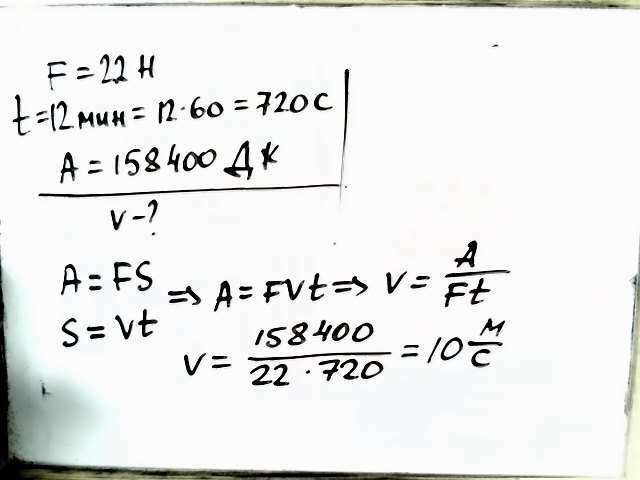 F = 22 Н
t = 12 мин = 12 · 60 = 720 с
A = 158400 Дж
v - ?
A = FS
S = Vt
⇒ A = FVt ⇒ V = A / Ft
V = 158400 / 22 · 720 = 10 м/с